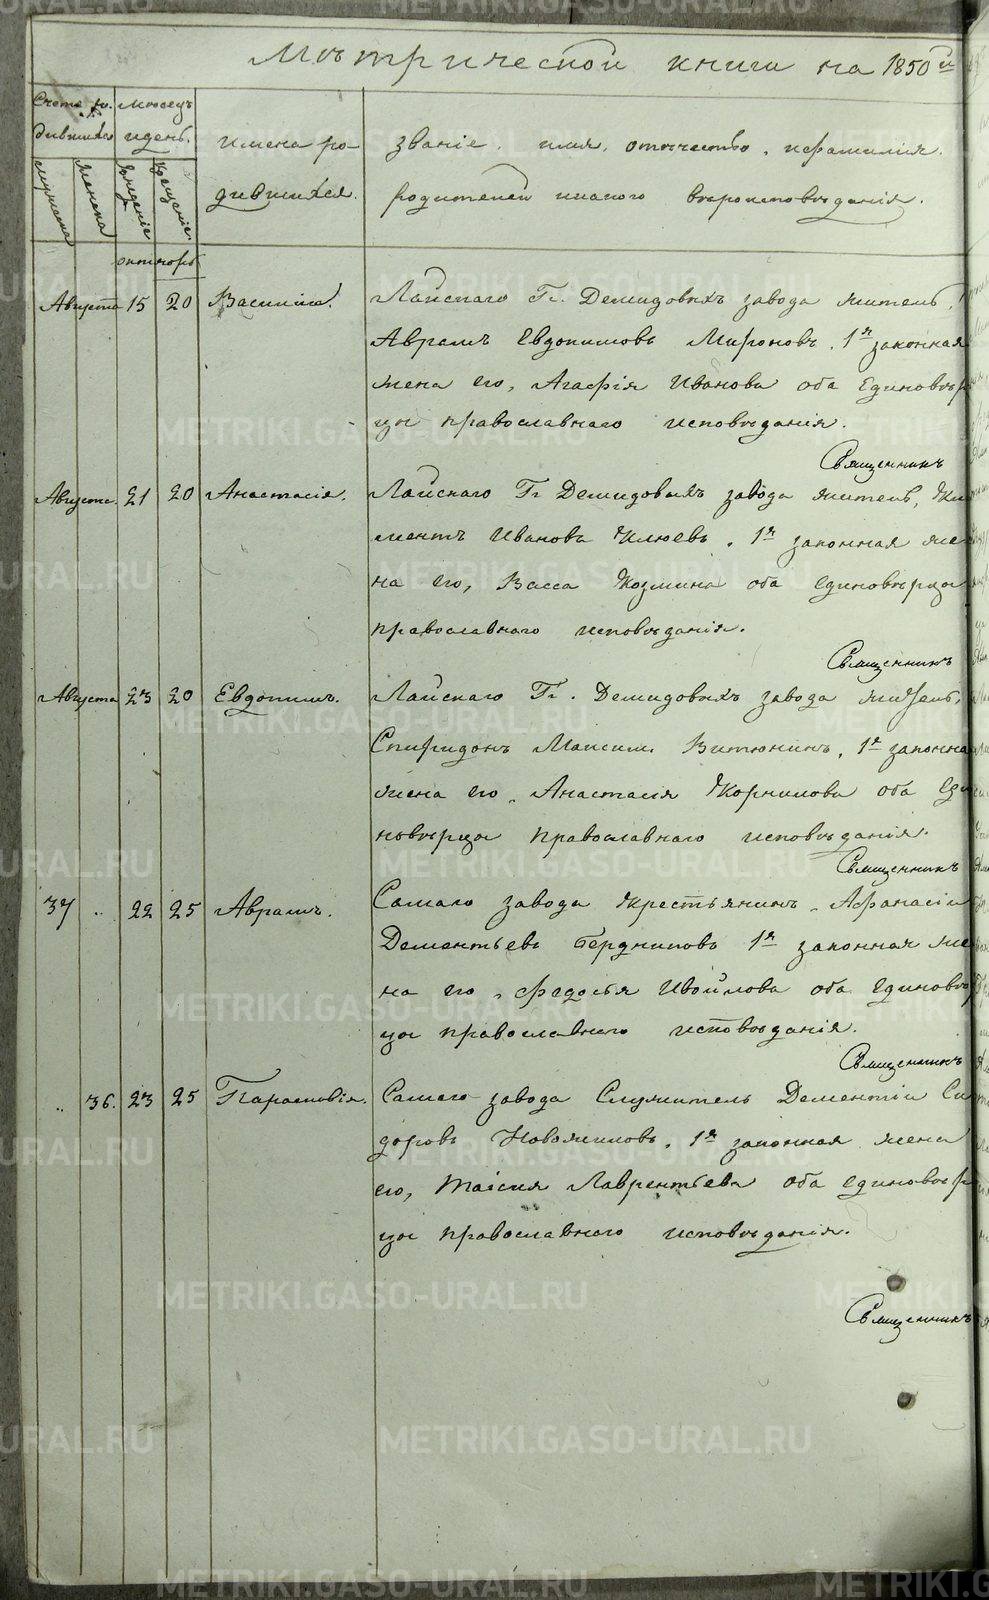 Метрической книги на 1850й
Счетъ ро-
дившихся
Мѣсяцъ
и день.
имена ро-
дившихся.
званіе, имя, отчество, и фамилія.
родителей и какого вѣроисповѣданія.
мужеска
женска
рожденія
крещенія
октябрь
Августа 15 20 Василиса. Лайскаго Гг. Демидовыхъ завода житель,
Аврамъ Евдокимовъ Мироновъ, 1я законная
жена его, Агафія Иванова оба Единовѣр
цы православнаго исповѣданія.
Священникъ
Августа. 21 20 Анастасія. Лайскаго Гг Демидовыхъ завода житель, Кли
ментъ Ивановъ Клюевъ, 1я законная же
на его, Васса Козмина оба единовѣрцы
православнаго исповѣданія.
Священникъ
Августа 23 20 Евдокимъ. Лайскаго Гг. Демидовыхъ завода житель,
Спиридонъ Максим. Витюнинъ, 1я законна
жена его, Анастасія Корнилова оба Еди
новѣрцы православнаго исповѣданія.
Священникъ
37 " 22 25 Аврамъ. Самаго завода крестьянинъ, Афанасій
Дементьевъ Бердниковъ 1я законная же
на его, Федосья Ивойлова оба единовѣр
цы православнаго исповѣданія.
Священникъ
" 36. 23 25 Парасковія. Самаго завода Служитель Дементій Си
доровъ Новожиловъ, 1я законная жена
его, Таисия Лаврентьева оба единовѣр
цы православнаго исповѣданія.
Священникъ
METRIKI.GASO-URAL.RU